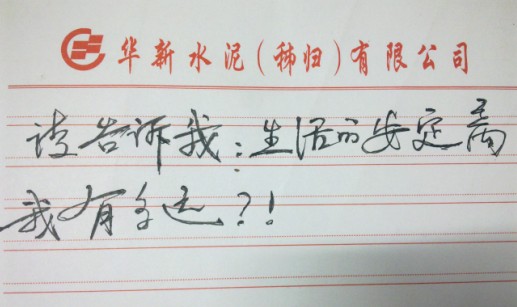 华新水泥(秭归)有限公司
请告诉我:生活的安定离
我有多远?!